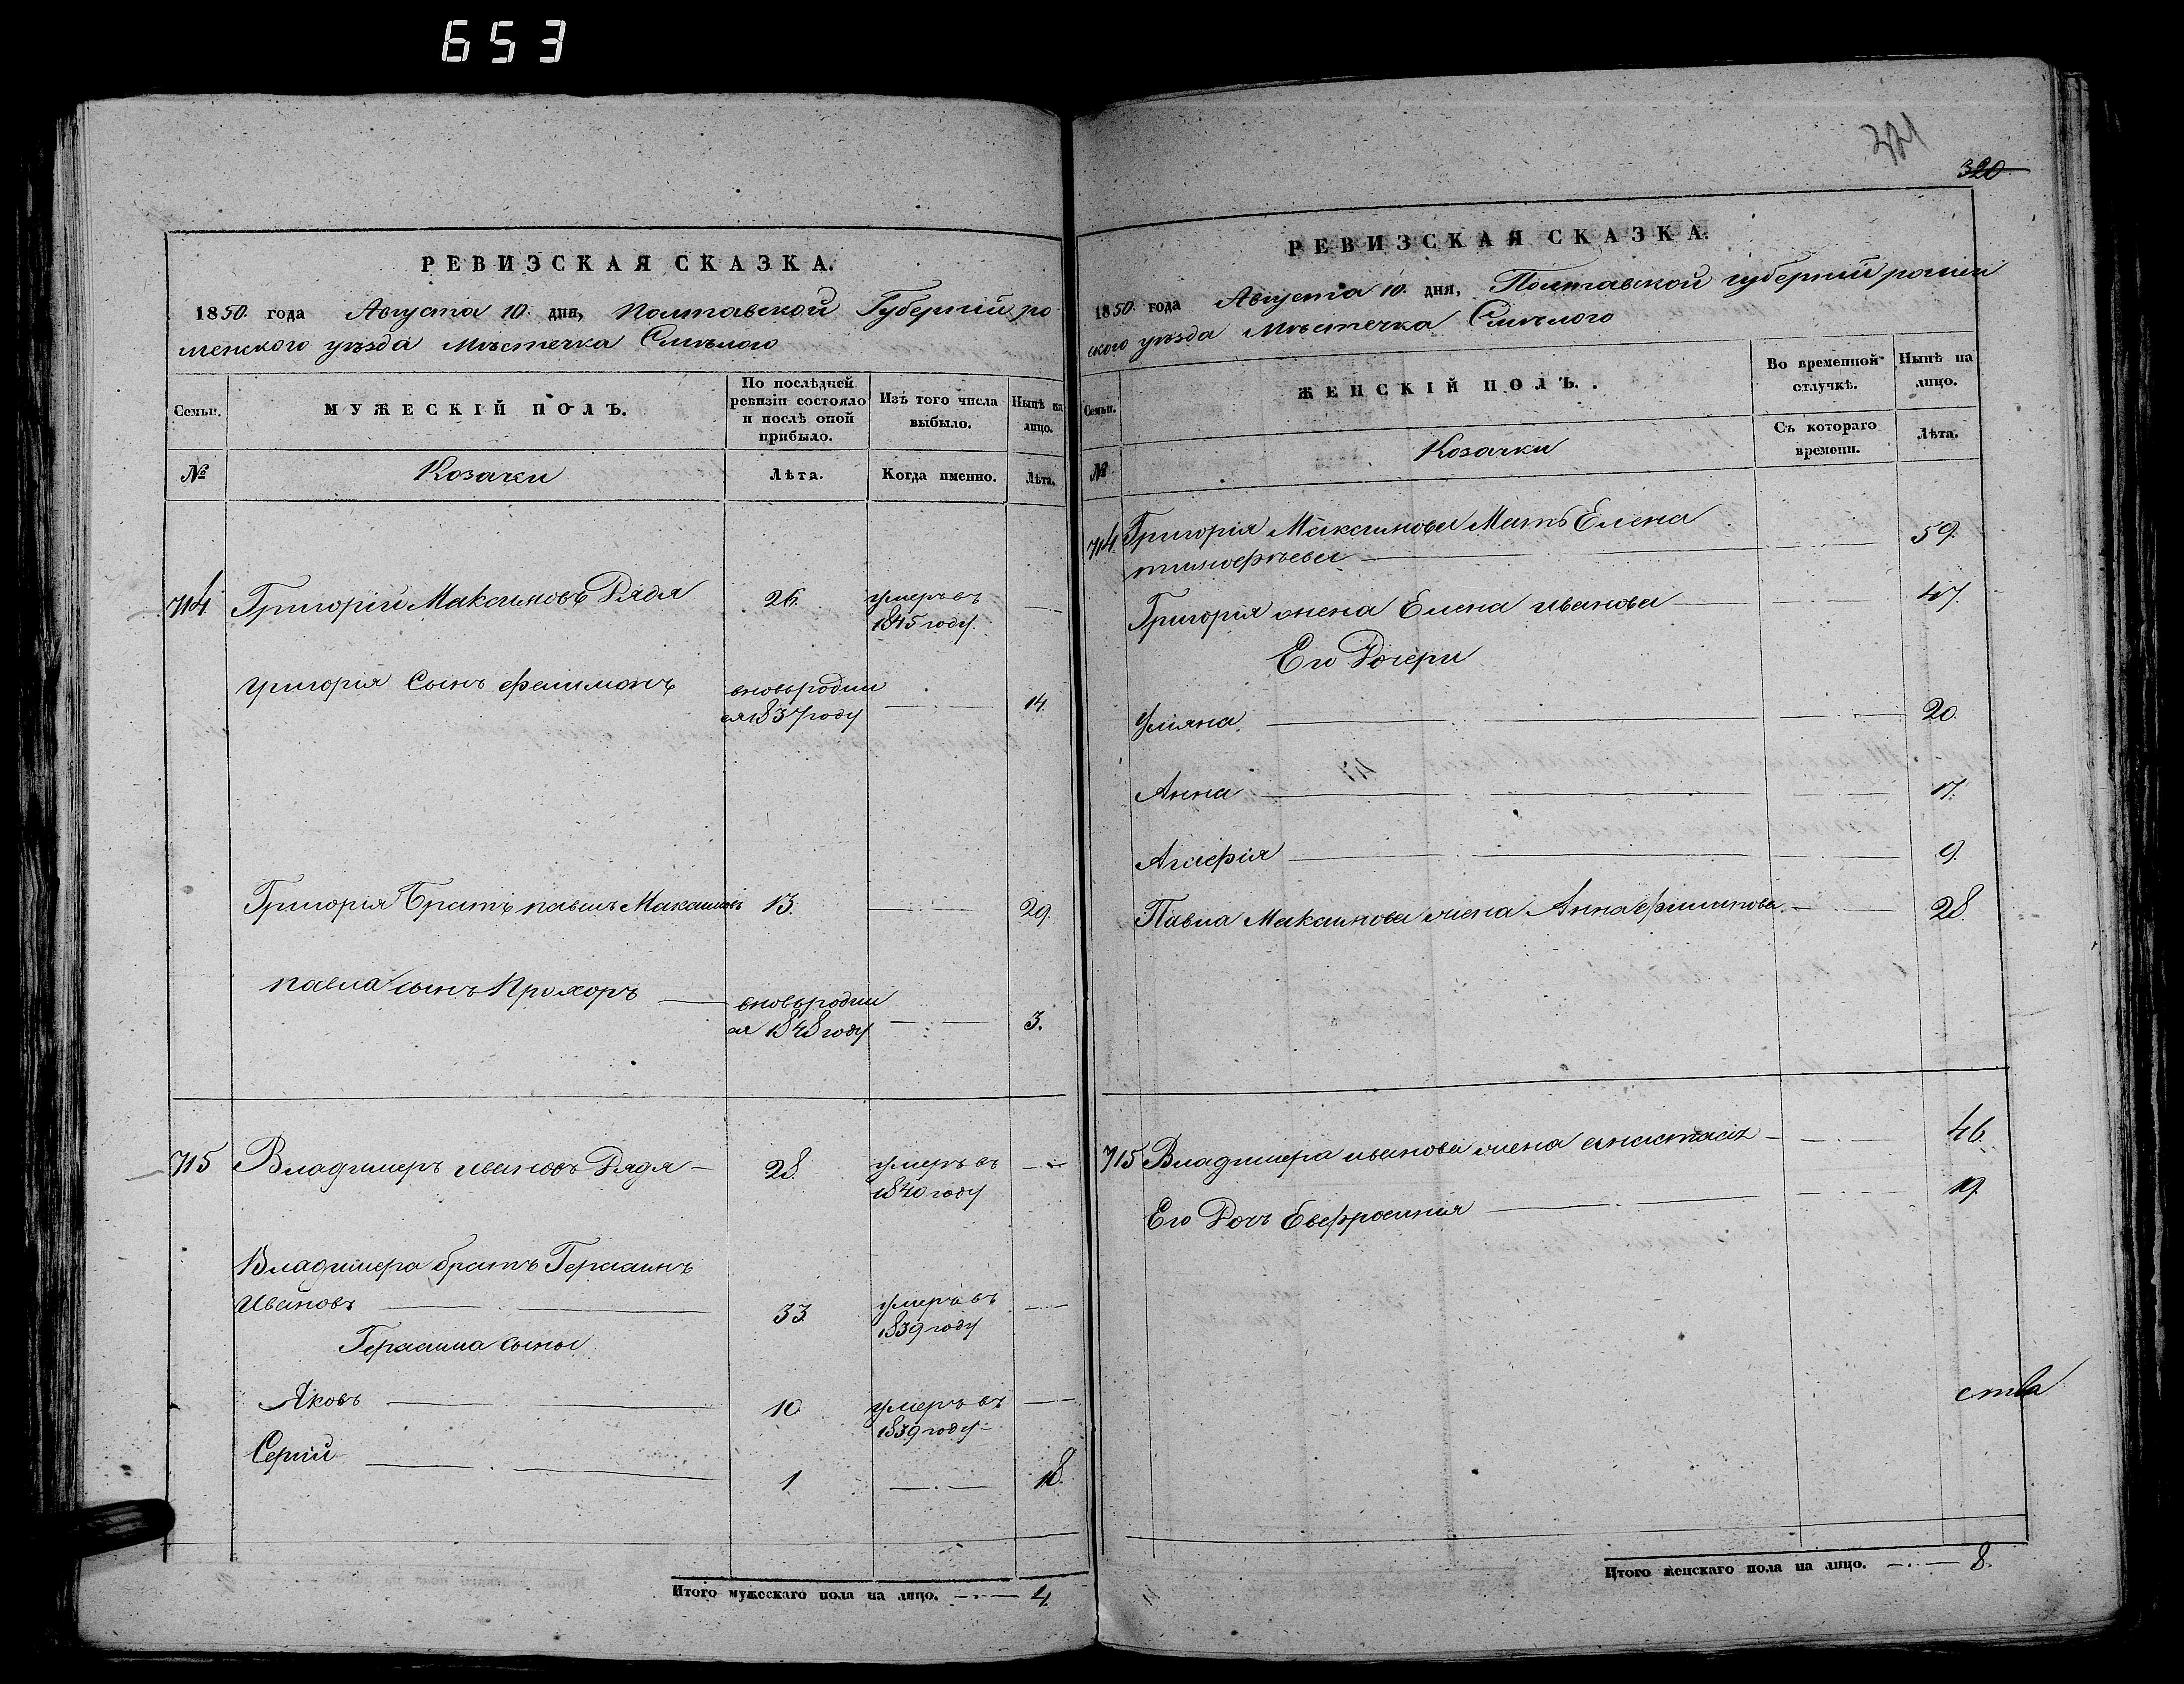 653
РЕВИЗСКАЯ СКАЗКА.
1850 года Августа 10 дня, Полтавской Губерніи ро
менского уѣзда Мѣстечка Смѣлого
Семьи.
МУЖЕСКІЙ ПОЛЪ.
По послѣдней ревизіи состояло и послѣ оной прибыло.
Изъ того числа выбыло.
Нынѣ на лицо.
№ Козачки Лѣта. Когда именно. Лѣта.
714 Григорій Максимовъ Дядя 26. умеръ въ
1845 году.
Григорія Сынъ Филимонъ вновь родил
ся 1837 году 14.
Григорія Братъ павилъ Максимовъ 13. 29
павла сынъ Прохоръ вновь родил
ся 1848 году 3.
715 Владимеръ ивановъ Дядя 28. умеръ въ
1840 году
Владимера братъ Герасимъ
Ивановъ 33 умеръ въ
1839 году
Герасима сыны
Яковъ 10 умеръ въ
1839 году
Сергій 1 18.
Итого мужескаго пола на лицо. 4
320
РЕВИЗСКАЯ СКАЗКА.
1850 года Августа 10 дня, Полтавской губерніи ромен
ского уѣзда Мѣстечка Смѣлого
Семьи.
ЖЕНСКІЙ ПОЛЪ.
Во временной отлучкѣ.
Нынѣ на лицо.
№ Козачки Съ котораго времени. Лѣта.
714. Григорія Максимова Мать Елена
тимофѣева 59.
Григорія жена Елена иванова 47.
Его Дочери
Уліяна 20.
Анна 17.
Агафія 9.
Павла Максимова жена Анна филипова 28.
715 Владимера иванова жена анастасія 46.
Его Дочь Евфросинія 19.
ства
Итого женскаго пола на лицо. 8.